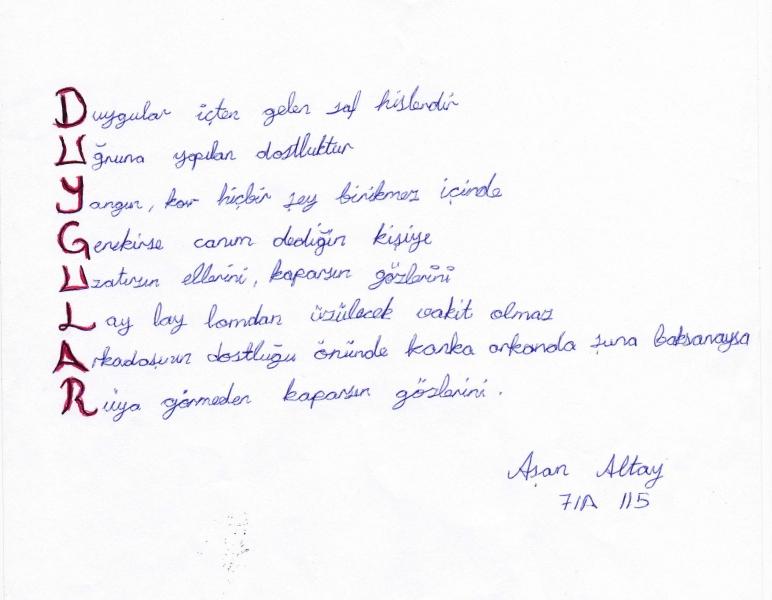 Duygular içten gelen saf hislerdir
Uğruna yapılan dostluktur
Yangın, kor hiçbir şey birikmez içinde
Gerekirse canım dediğin kişiye
Uzatırsın ellerini, kaparsın gözlerini
Lay lay lomdan üzülecek vakit olmaz
Arkadaşının dostluğu önünde kanka arkanda şuna baksanaysa
Rüya görmeden kaparsın gözlerini.
Aşan Altay
7/A 115